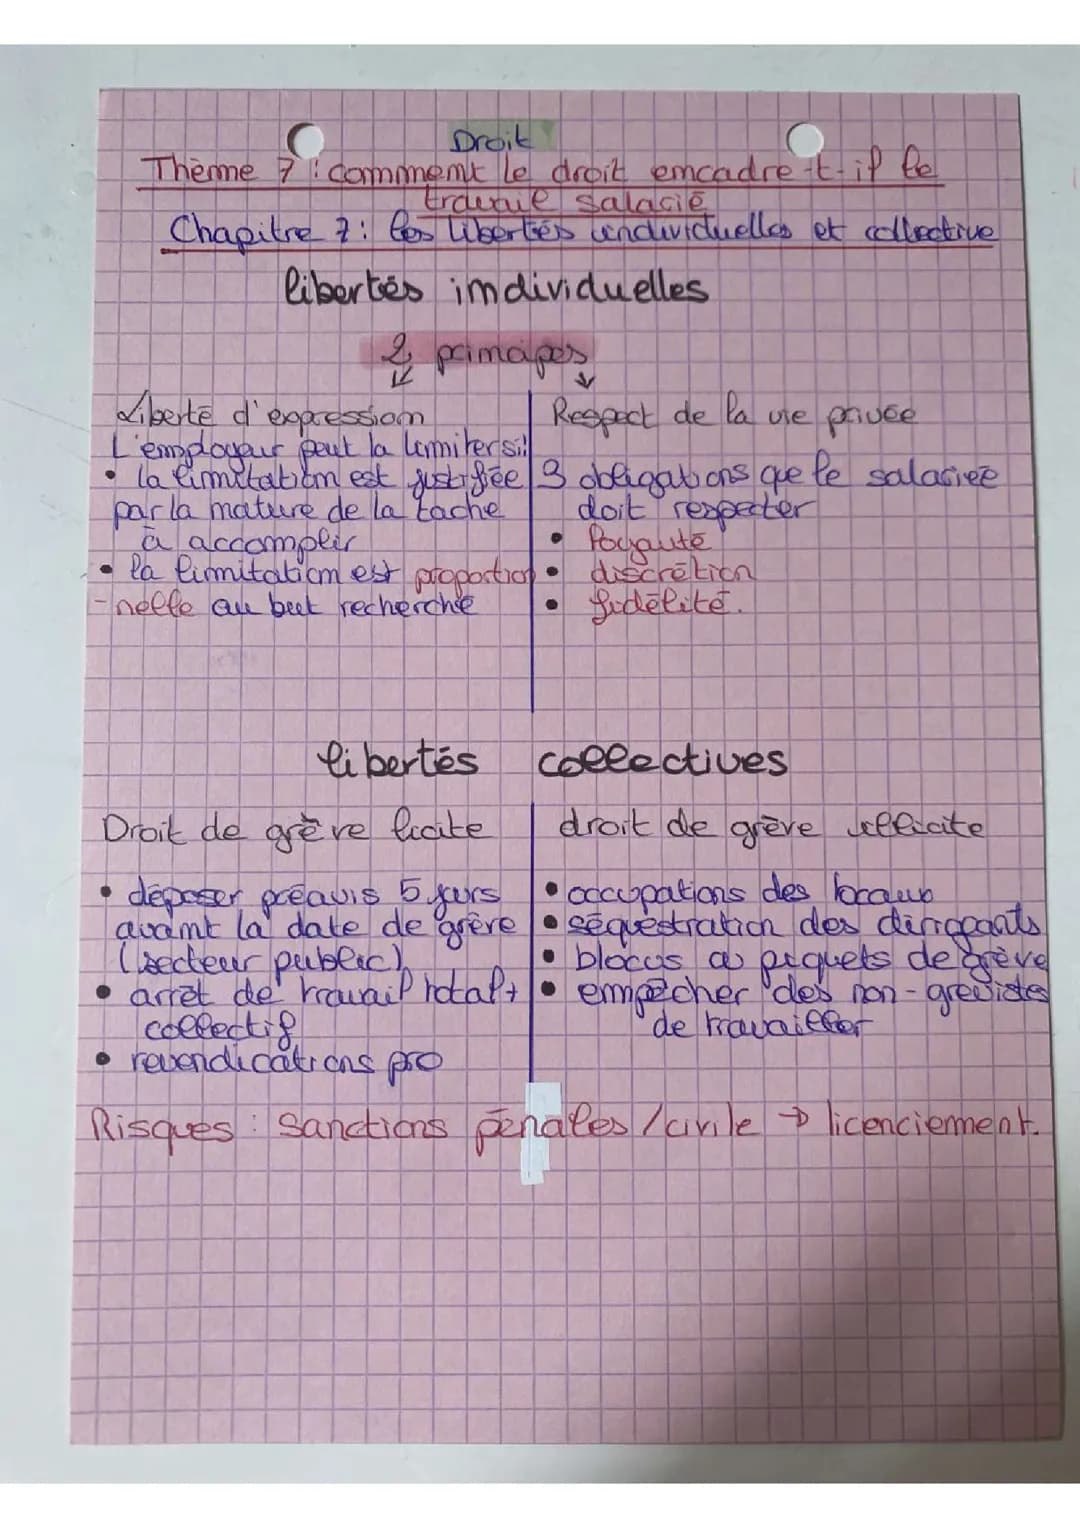 Droit
Thème 7 : comment le droit encadre-t-il le
travail salarié
Chapitre 7 : les libertés individuelles et collective
libertés individuelles
2 principes
Liberté d'expression
L'employeur peut la limiter si:
• la limitation est justifiée
par la nature de la tache
à accomplir
• la limitation est proportion
-nelle au but recherché
Respect de la vie privée
3 obligations que le salariée
doit respecter
• loyauté
• discrétion
• fidélité.
libertés collectives
Droit de grève licite
• déposer préavis 5 jurs
avant la date de grève
(secteur public)
• arrêt de travail total +
collectif
• revendications pro
droit de grève illicite
• occupations des locaux
• séquestration des dirigeants
• blocus piquets de grève
• empêcher des non-grévistes
de travailler
Risques : Sanctions pénales / civile → licenciement.